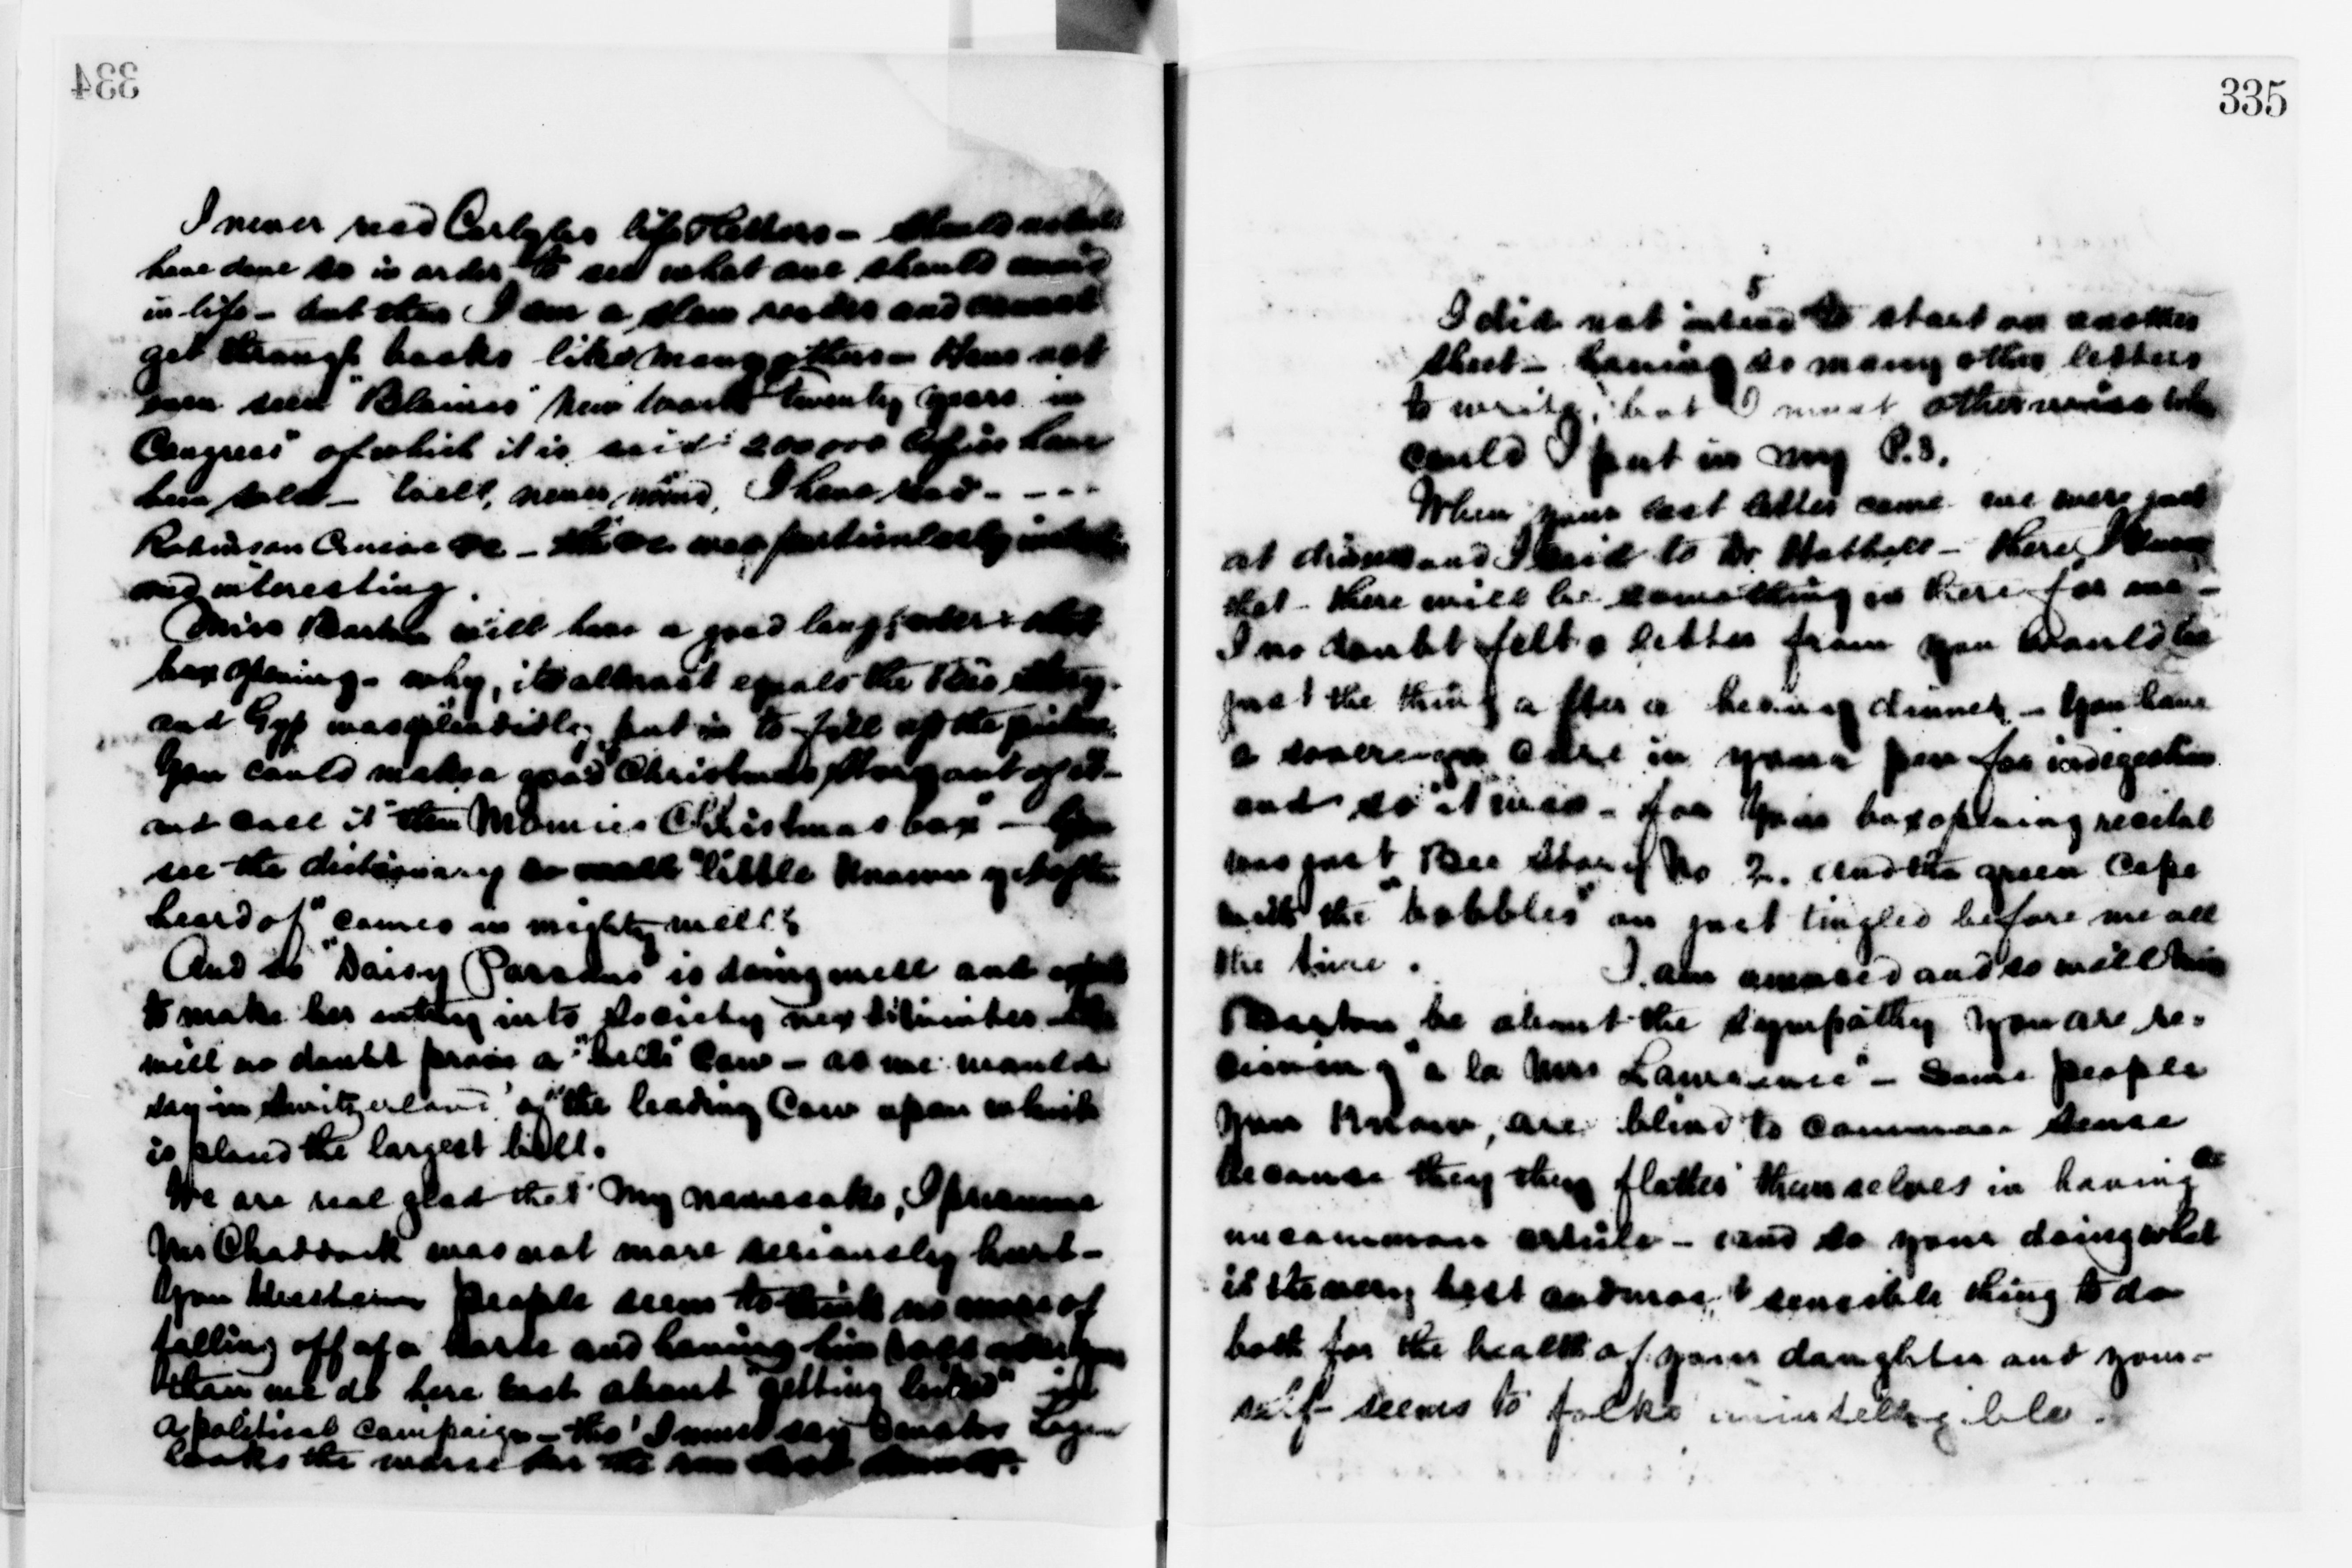 334
I never read Carlyles life & letters - should
have done so in order to see what one should avoid
in life - but then I am a slow reader and cannot
get through books like many others - Have not
even seen "Blaines" new work "Twenty years in
Congress" of which it is said 200000 copies have
been sold - Well, never mind, I have read - - - -
Robinson Crusoe &c - the &c was particularly
and interesting.
Miss Barton will have a good laugh over
box opening - why, it almost equals the Bee story -
and Gyp was splendidly put in to fill up the picture
You could make a good Christmas Story out of it -
and call it then Mamies Christmas box" - You
see the dictionary so well "little known yet often
heard of" comes in mighty well!
And so "Daisy Parsons" is doing well and
to make her entry into society next winter - She
will no doubt prove a "bell" Cow - as we would
say in Switzerland of the leading Cow upon which
is placed the largest bell.
We are real glad that my namesake, I presume
Mr Chaddock was not more seriously hurt -
You Western people seem to think no more of
falling off of a horse and having him roll over you
than we do here East about "getting licked" in
a political campaign - tho' I must say Senator Logan
looks the worse for the
335
5
I did not intend to start on another
sheet - having so many other letters
to write, but I must otherwise where
could I put in my P.S.
When your last letter came we were just
at dinner and I said to Dr Hubbell - There, I know
that - there will be something in there for me -
I no doubt felt a letter from you would be
just the thing after a heavy dinner - You have
a sovereign cure in your pen for indigestion
and so it was - for your box opening recital
was just Bee Story No 2. And the green Cape
with the "bobbles" on just tingled before me all
the time. I am amused and so will Miss
Barton be about the sympathy you are re-
ceiving "a la Mrs Lawrence" - Some people
you know, are blind to common sense
because they they flatter themselves in having the
uncommon article - and so your doing what
is the very best and most sensible thing to do
both for the health of your daughter and your-
self seems to folks unintelligible.